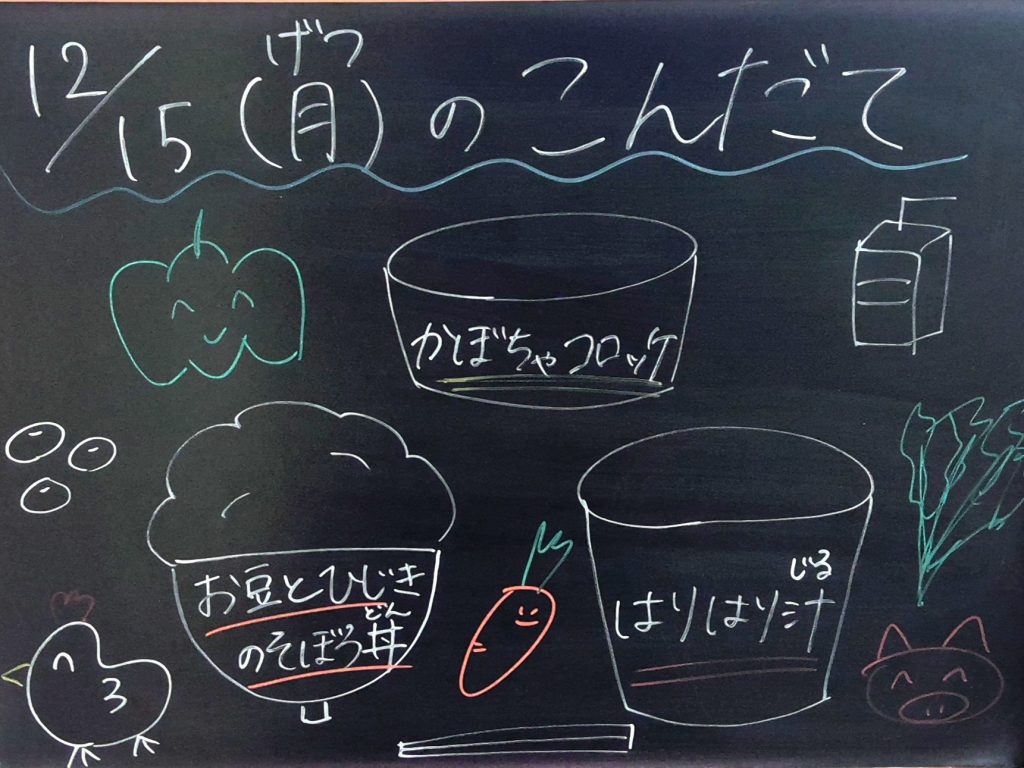 12/15(月)のこんだて
げつ
かぼちゃコロッケ
お豆とひじき
のそぼろ丼
どん
はりはり汁
じる